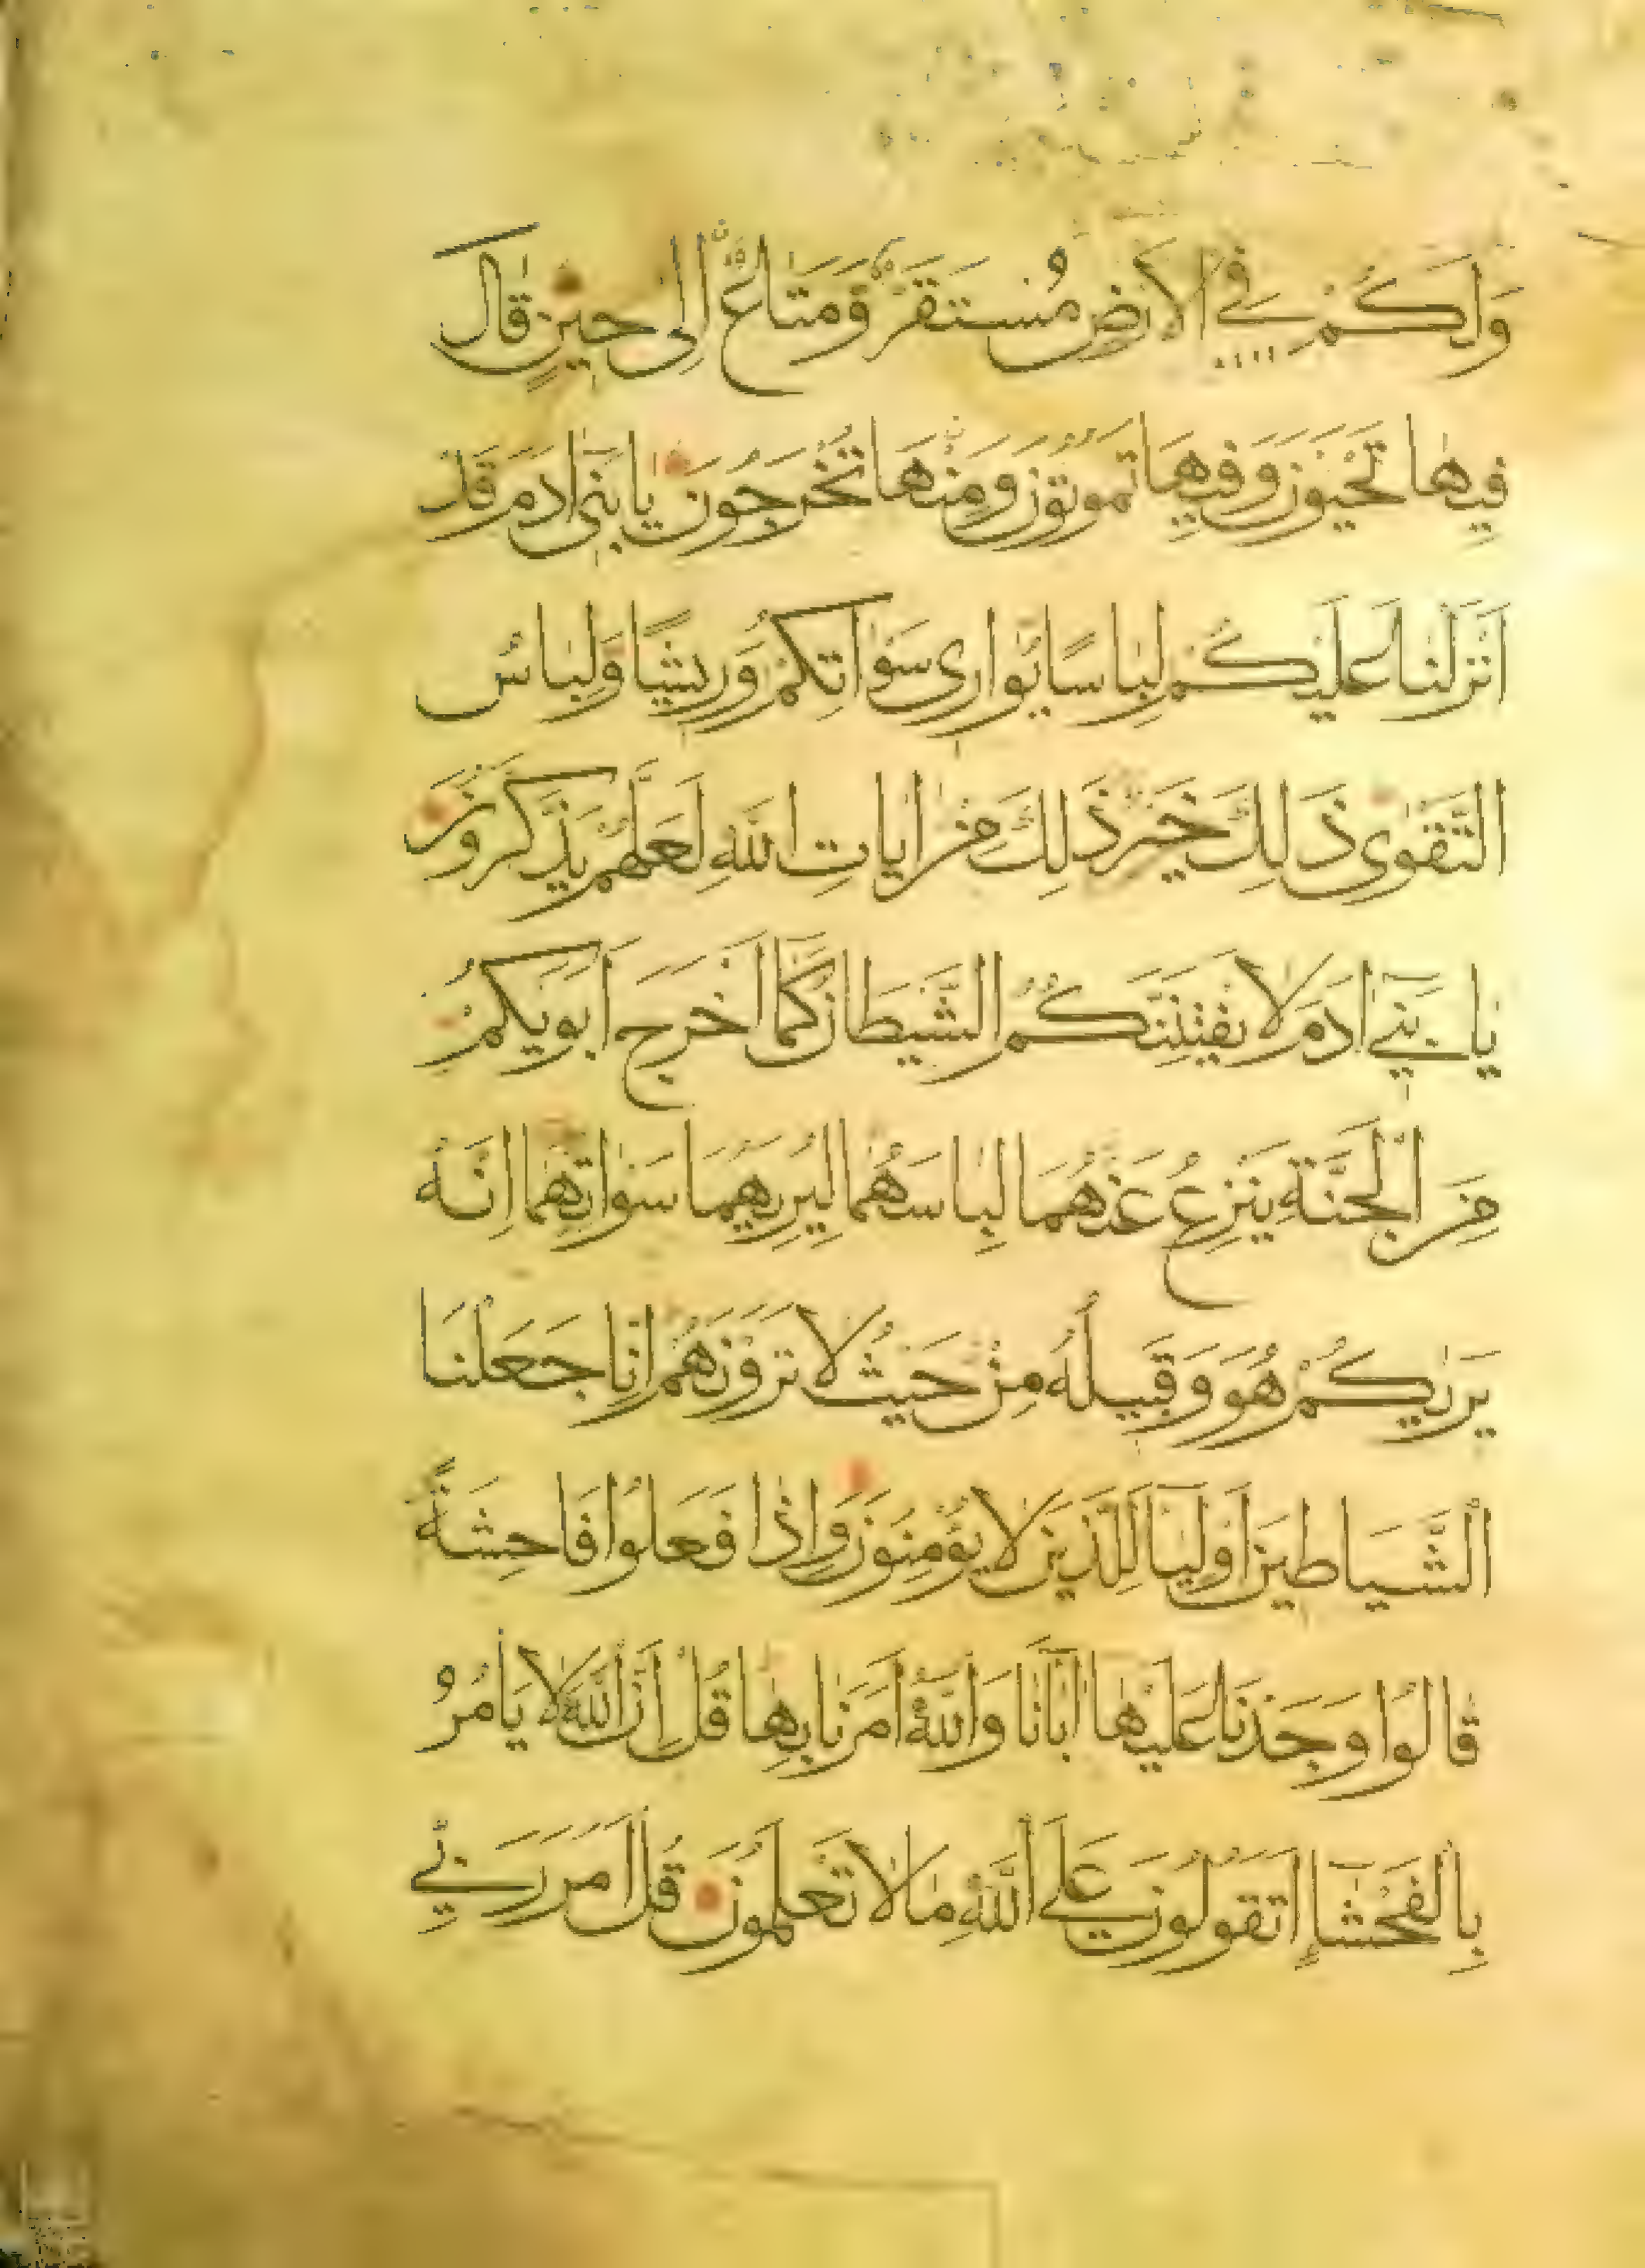 وَلَكُمْ فِي الْاَرْضِ مُسْتَقَرٌّ وَمَتَاعٌ اِلٰى حِينٍ قَالَ
فِيهَا تَحْيَوْنَ وَفِيهَا تَمُوتُونَ وَمِنْهَا تُخْرَجُونَ يَا بَنِى اٰدَمَ قَدْ
اَنْزَلْنَا عَلَيْكُمْ لِبَاسًا يُوَارِى سَوْاٰتِكُمْ وَرِيشًا وَلِبَاسُ
التَّقْوٰى ذَلِكَ خَيْرٌ ذَلِكَ مِنْ اٰيَاتِ اللّٰهِ لَعَلَّهُمْ يَذَّكَّرُونَ
يَا بَنِي اٰدَمَ لَا يَفْتِنَنَّكُمُ الشَّيْطَانُ كَمَا اَخْرَجَ اَبَوَيْكُمْ
مِنَ الْجَنَّةِ يَنْزِعُ عَنْهُمَا لِبَاسَهُمَا لِيُرِيَهُمَا سَوْاٰتِهِمَا اِنَّهُ
يَرٰيكُمْ هُوَ وَقَبِيلُهُ مِنْ حَيْثُ لَا تَرَوْنَهُمْ اِنَّا جَعَلْنَا
الشَّيَاطِينَ اَوْلِيَا لِلَّذِينَ لَا يُؤْمِنُونَ وَاِذَا فَعَلُوا فَاحِشَةً
قَالُوا وَجَدْنَا عَلَيْهَا اٰبَانَا وَاللّٰهُ اَمَرَنَا بِهَا قُلْ اِنَّ اللّٰهَ لَا يَامُرُ
بِالْفَحْشَاءِ اَتَقُولُونَ عَلَى اللّٰهِ مَا لَا تَعْلَمُونَ قُلْ اَمَرَ رَبِّي